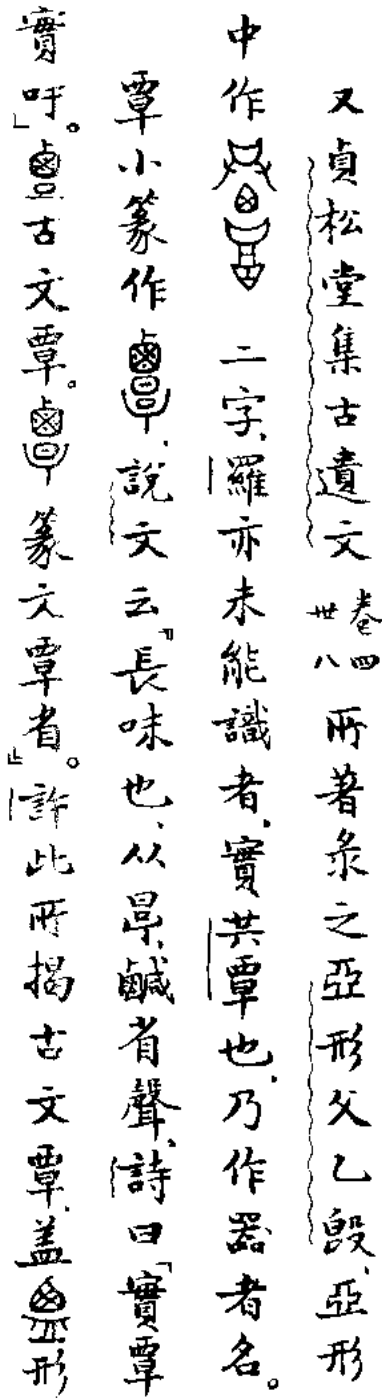 又貞松堂集古遺文卷四卅八所著彔之亞形父乙𣪘、亞形
中作 二字、羅亦未能識者、實共覃也、乃作器者名。
覃小篆作 、說文云『長味也、从㫗、鹹省聲、詩曰「實覃
實吁。」 古文覃。 篆文覃省。』許此所揭古文覃、蓋 形